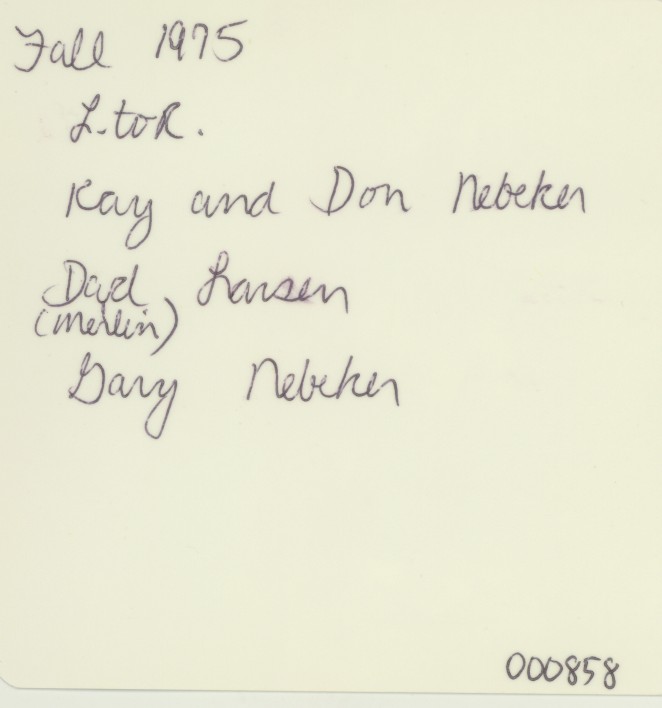 Fall 1975
L. to R.
Kay and Don Nebeker
Dad Larsen
(Merlin)
Gary Nebeker
000858